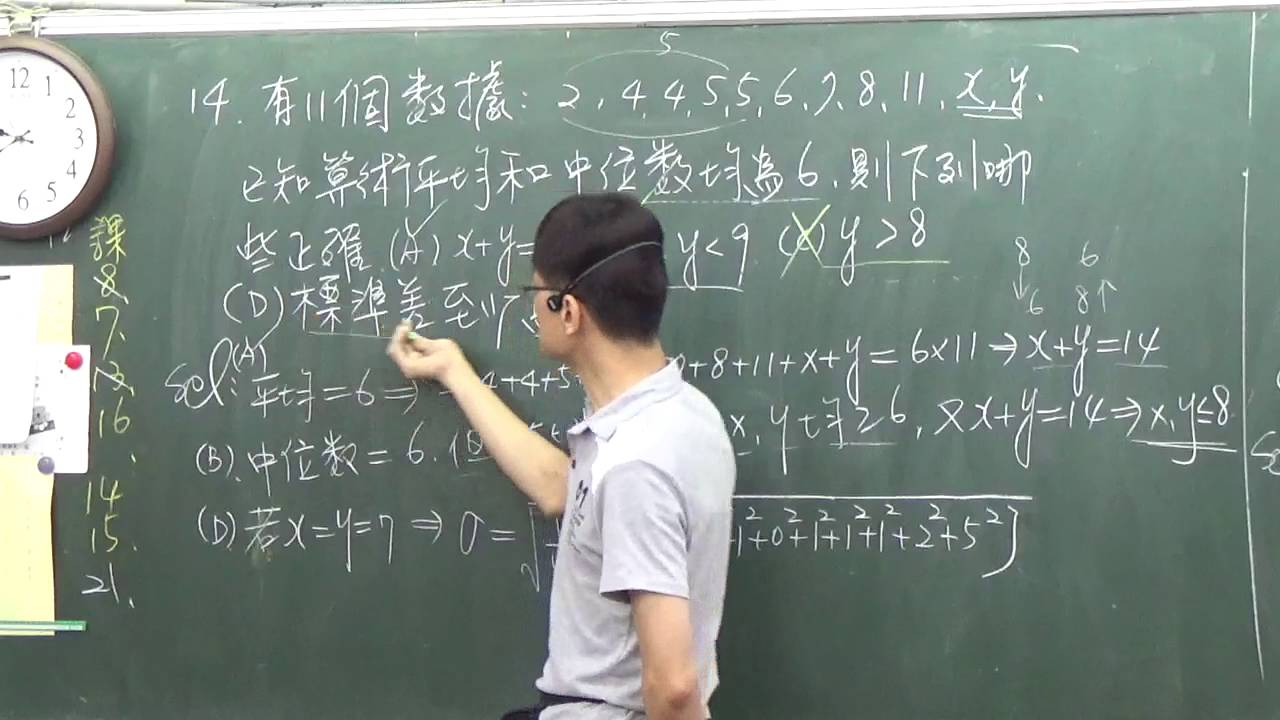 5
14. 有11個數據: 2, 4, 4, 5, 5, 6, 7, 8, 11, x, y.
已知算術平均和中位數均為6, 則下列哪
些正確 (A) x+y= y<9 (C) y>8
(D) 標準差至少
8 6
↓ 6 8↑
sol: (A) 平均=6 ⇒ 4+4+5 +8+11+x+y=6×11 ⇒ x+y=14
(B). 中位數=6. 但 x, y均≥6, 又x+y=14 ⇒ x, y≤8
(D). 若x=y=7 ⇒ σ=√ 1²+0²+1²+1²+1²+2²+5²]
12
1
2
3
4
5
6
課
8.
7.
13.
16
14
15.
21.